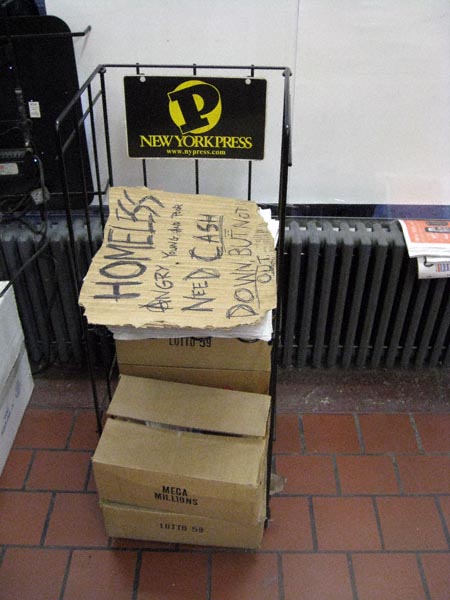 P
NEW YORK PRESS
www.nypress.com
HOMELESS
ANGRY YOUNG AND POOR
NEED CASH
DOWN BUT NOT
OUT
LOTTO 59
MEGA
MILLIONS
LOTTO 59